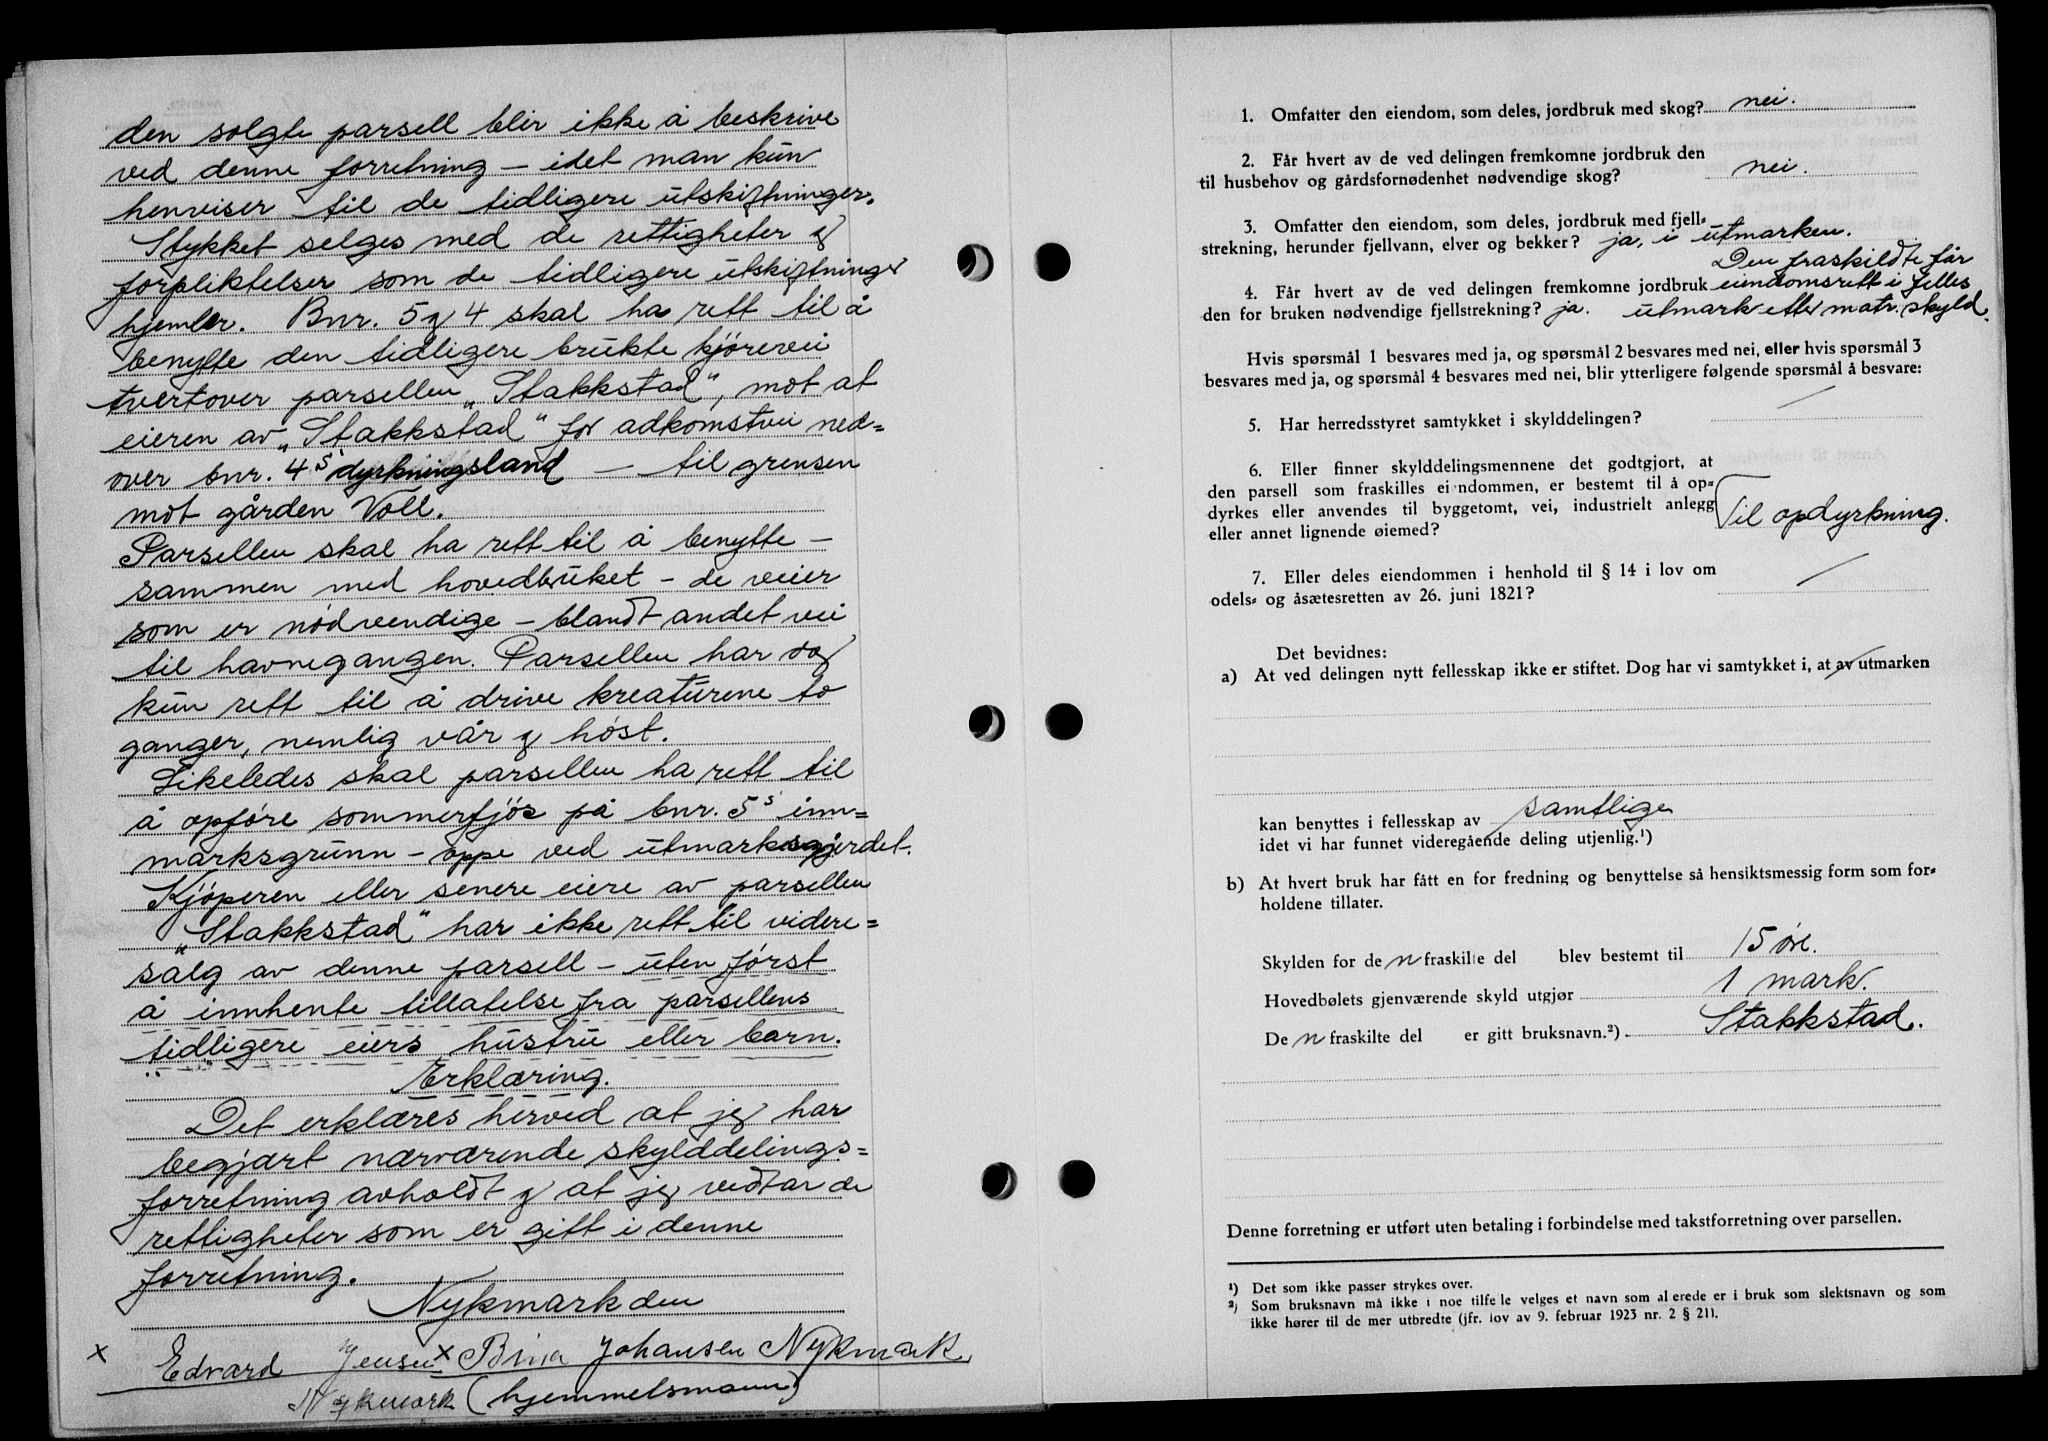 den solgte parsell blir ikke å beskrive
ved denne forretning – idet man kun
henviser til de tidligere utskiftninger.
Stykket selges med de rettigheter og
forpliktelser som de tidligere utskiftninger
hjemler. Bnr. 5 og 4 skal ha rett til å
benytte den tidligere brukte kjörevei
tvertover parsellen „Stakkstad“, mot at
eieren av „Stakkstad“ får adkomstvei ned=
over bnr. 4's dyrkningsland – til grensen
mot gården Voll.
Parsellen skal ha rett til å benytte –
sammen med hovedbruket – de veier
som er nödvendige – blandt andet vei
til havnegangen. Parsellen har dog
kun rett til å drive kreaturene to
ganger, nemlig vår og höst.
Likeledes skal parsellen ha rett til
å opföre sommerfjös på bnr. 5's inn=
marksgrunn – oppe ved utmarksgjerdet.
Kjöperen eller senere eiere av parsellen
„Stakkstad“ har ikke rett til videre=
salg av denne parsell – uten först
å innhente tillatelse fra parsellens
tidligere eiers hustru eller barn.
Erklæring.
Det erklæres herved at jeg har
begjært nærværende skylddelings=
forretning avholdt og at jeg vedtar de
rettigheter som er gitt i denne
forretning.
Nykmark den
x Edvard Jensen x Brina Johansen Nykmark
Nykmark (hjemmelsmann)
1. Omfatter den eiendom, som deles, jordbruk med skog? nei.
2. Får hvert av de ved delingen fremkomne jordbruk den
til husbehov og gårdsfornødenhet nødvendige skog? nei.
3. Omfatter den eiendom, som deles, jordbruk med fjell-
strekning, herunder fjellvann, elver og bekker? ja, i utmarken.
Den fraskildte får
4. Får hvert av de ved delingen fremkomne jordbruk eiendomsrett i felles
den for bruken nødvendige fjellstrekning? ja. utmark etter matr. skyld.
Hvis spørsmål 1 besvares med ja, og spørsmål 2 besvares med nei, eller hvis spørsmål 3
besvares med ja, og spørsmål 4 besvares med nei, blir ytterligere følgende spørsmål å besvare:
5. Har herredsstyret samtykket i skylddelingen? /
6. Eller finner skylddelingsmennene det godtgjort, at
den parsell som fraskilles ei ndommen, er bestemt til å op-
dyrkes eller anvendes til byggetomt, vei, industrielt anlegg
eller annet lignende øiemed? Til opdyrkning.
7. Eller deles eiendommen i henhold til § 14 i lov om
odels- og åsætesretten av 26. juni 1821? /
Det bevidnes:
a) At ved delingen nytt fellesskap ikke er stiftet. Dog har vi samtykket i, at av utmarken
kan benyttes i fellesskap av samtlige
idet vi har funnet videregående deling utjenlig.¹)
b) At hvert bruk har fått en for fredning og benyttelse så hensiktsmessig form som for-
holdene tillater.
Skylden for de n fraskilte del blev bestemt til 15 øre.
Hovedbølets gjenværende skyld utgjør 1 mark.
De n fraskilte del er gitt bruksnavn.²) Stakkstad.
Denne forretning er utført uten betaling i forbindelse med takstforretning over parsellen.
¹) Det som ikke passer strykes over.
²) Som bruksnavn må ikke i noe tilfelle velges et navn som al erede er i bruk som slektsnavn og som
ikke hører til de mer utbredte (jfr. lov av 9. februar 1923 nr. 2 § 21).